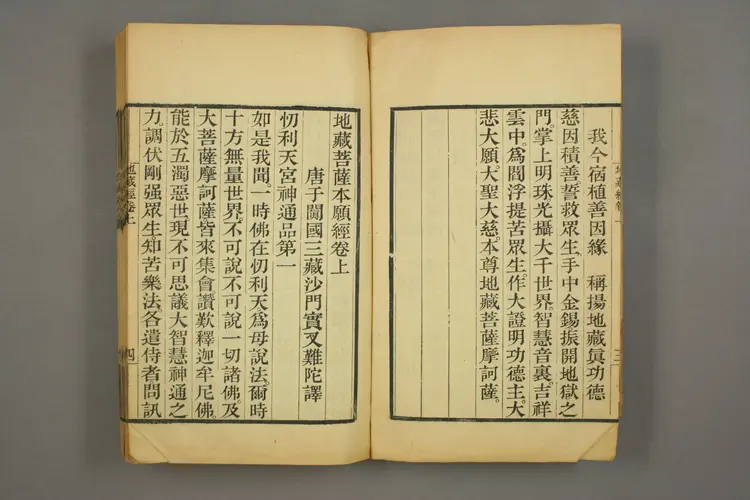 我今宿植善因緣　稱揚地藏眞功德
慈因積善誓救眾生、手中金錫振開地獄之
門。掌上明珠光攝大千世界。智慧音裏。吉祥
雲中。爲閻浮提苦眾生。作大證明功德主。大
悲大願。大聖大慈。本尊地藏菩薩摩訶薩。
三
地藏菩薩本願經卷上
唐于闐國三藏沙門實叉難陀譯
忉利天宮神通品第一
如是我聞。一時佛在忉利天爲母說法。爾時
十方無量世界。不可說不可說一切諸佛。及
大菩薩摩訶薩皆來集會讚歎釋迦牟尼佛。
能於五濁惡世現不可思議大智慧神通之
力。調伏剛强眾生知苦樂法。各遣侍者問訊
地藏經卷上
四